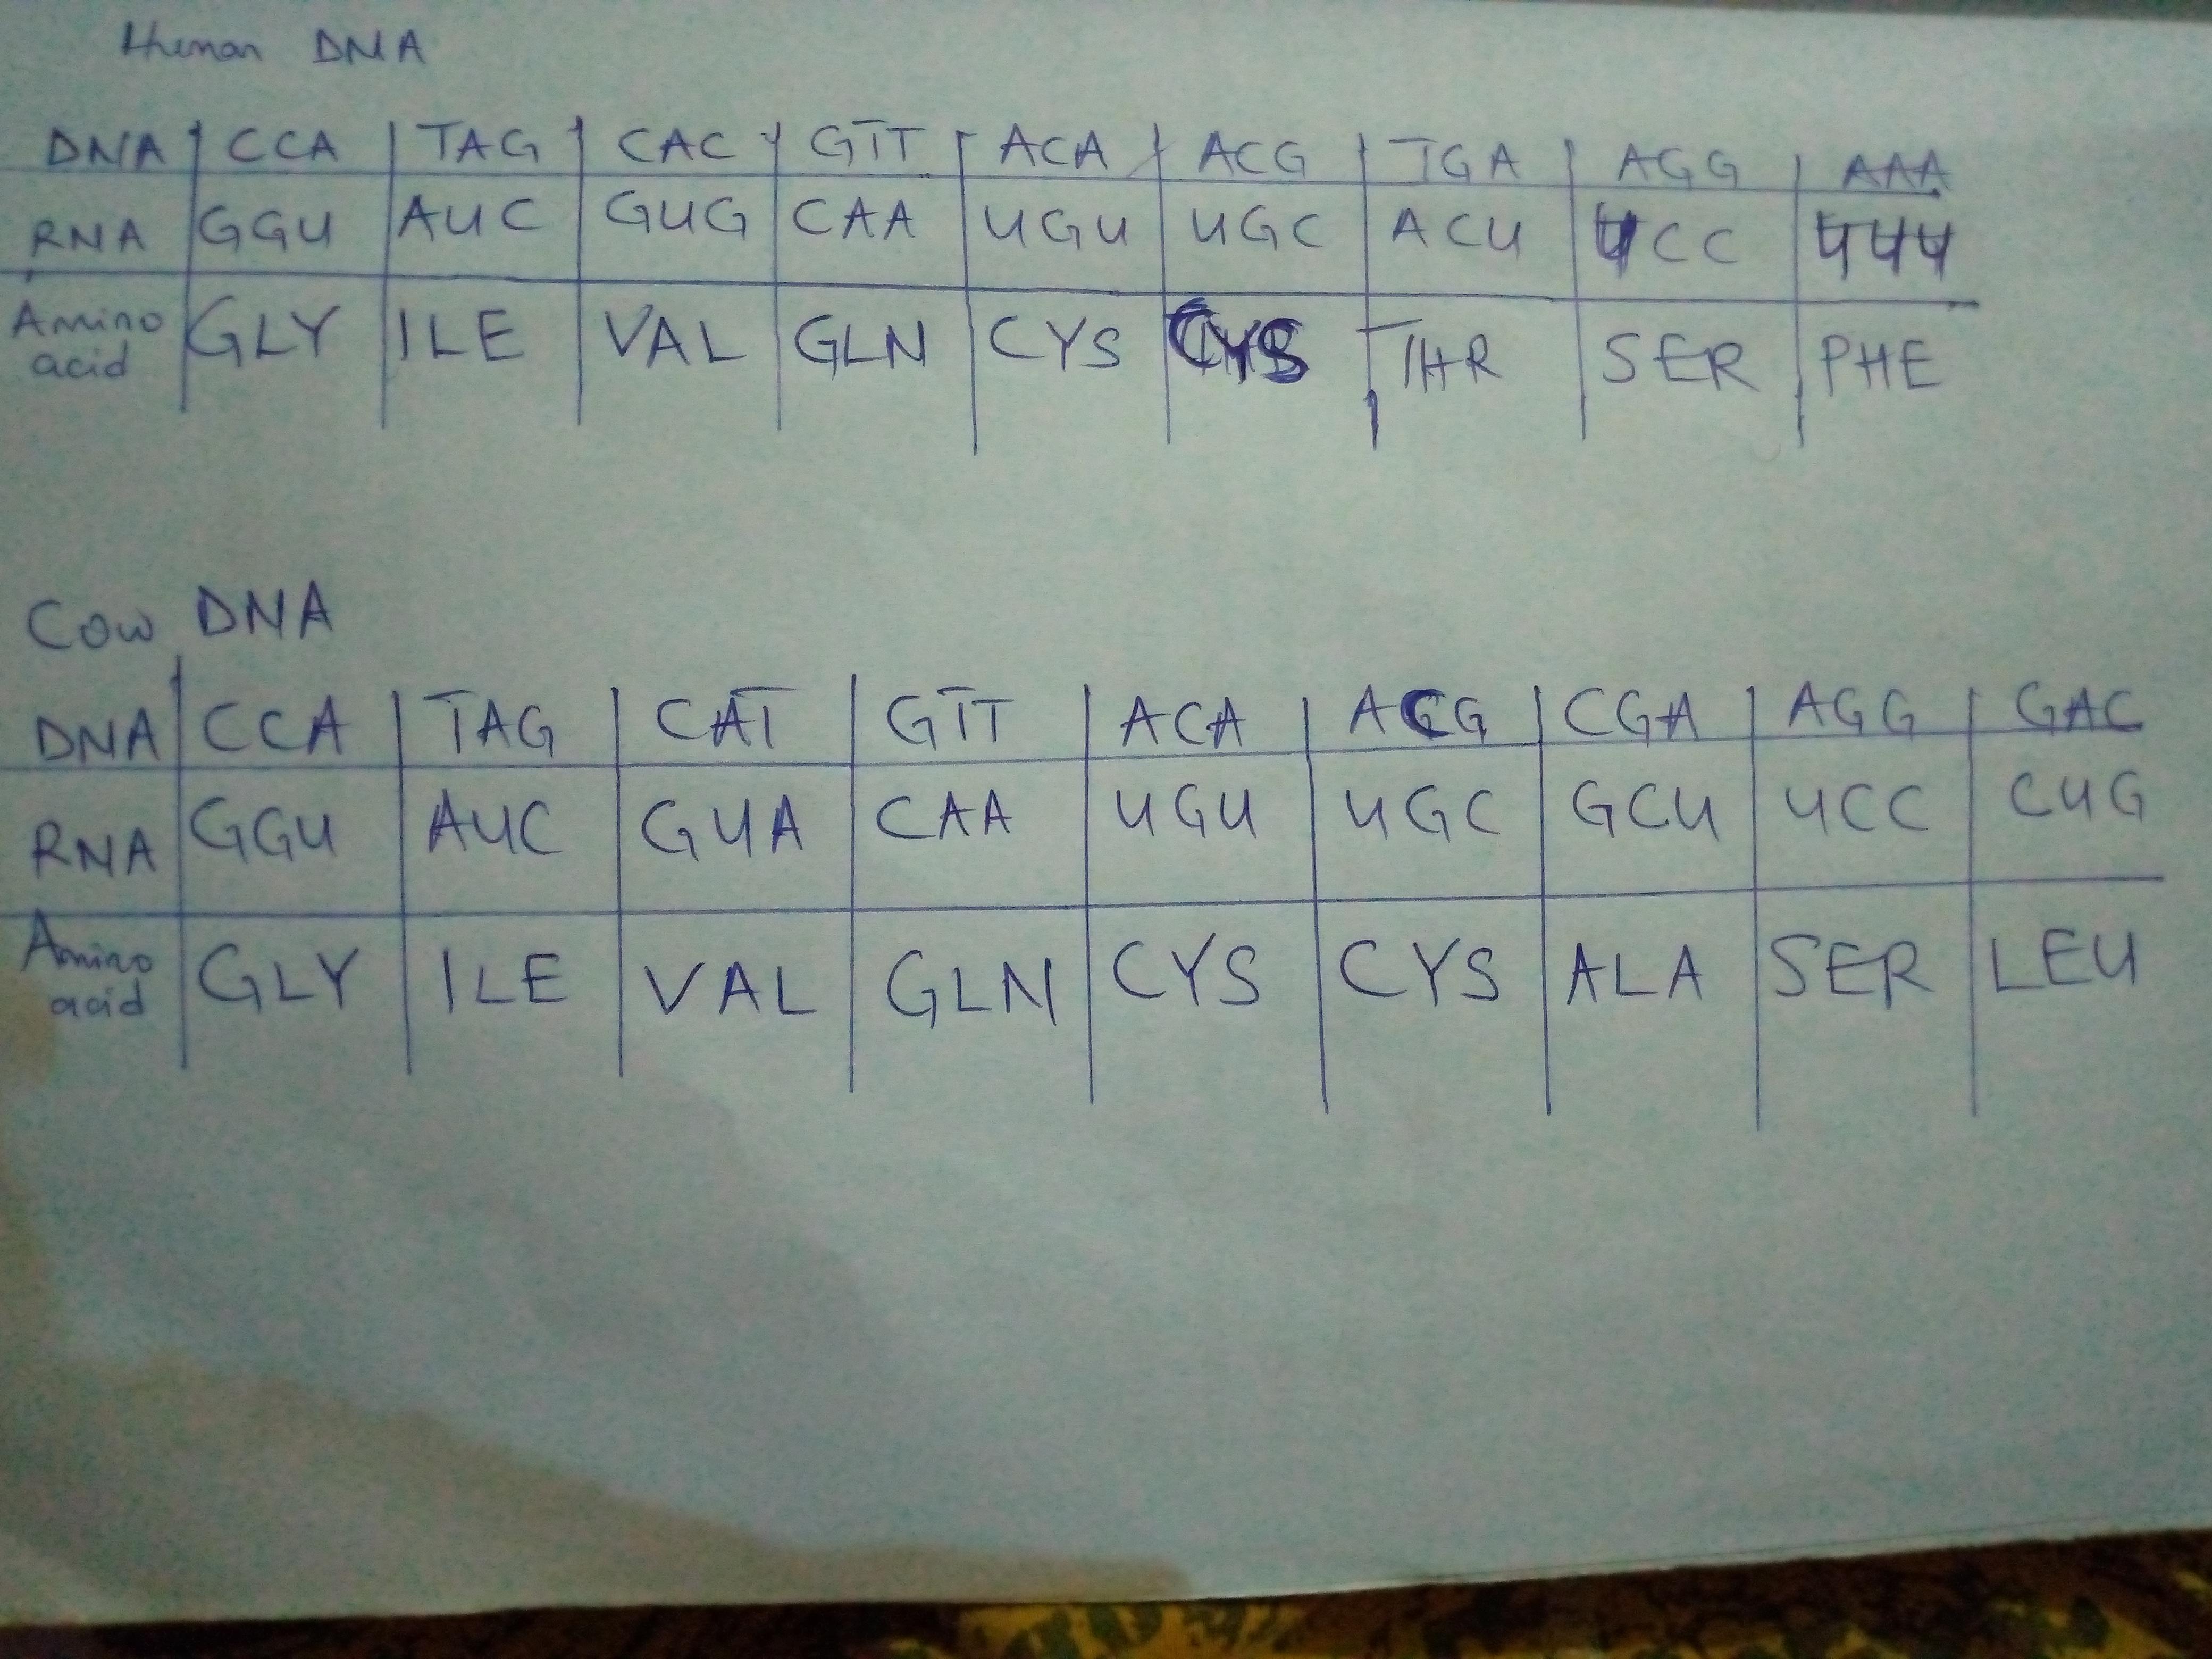 Human DNA
DNA CCA TAG CAC GTT ACA ACG TGA AGG AAA
RNA GGU AUC GUG CAA UGU UGC ACU UCC UUU
Amino acid GLY ILE VAL GLN CYS CYS THR SER PHE
Cow DNA
DNA CCA TAG CAT GTT ACA ACG CGA AGG GAC
RNA GGU AUC GUA CAA UGU UGC GCU UCC CUG
Amino acid GLY ILE VAL GLN CYS CYS ALA SER LEU